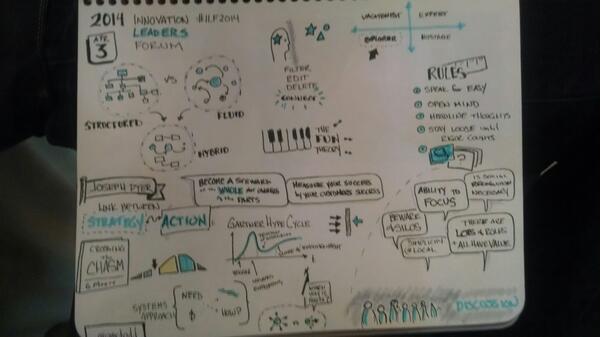 2014 INNOVATION #ILF2014
LEADERS
FORUM
APR
3
VACATIONIST EXPERT
EXPLORER HOSTAGE
FILTER
EDIT
DELETE
CONNECT
VS
STRUCTURED
FLUID
HYBRID
THE
FUN
THEORY
RULES
SPEAK EASY
OPEN MIND
HEADLINE THOUGHTS
STAY LOOSE until
RIGOR COUNTS
JOSEPH DYER
BECOME A STEWARD
of the WHOLE not OWNERS
of the PARTS
MEASURE YOUR SUCCESS
by YOUR CUSTOMERS SUCCESS
LINK BETWEEN
STRATEGY ACTION
GARTNER HYPE CYCLE
CROSSING
the
CHASM
G. Moore
SYSTEMS
APPROACH
NEED
HOW?
ABILITY TO
FOCUS
BEWARE
of SILOS
SIMPLICITY
of LOCAL
THERE ARE
LOBS & ROLES
ALL HAVE VALUE
NECESSARY
DISCUSSION